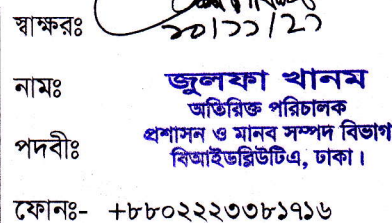 স্বাক্ষরঃ ২০/১১/২১
নামঃ জুলফা খানম
অতিরিক্ত পরিচালক
পদবীঃ প্রশাসন ও মানব সম্পদ বিভাগ
বিআইডব্লিউটিএ, ঢাকা।
ফোনঃ- +৮৮০২২২৩৩৮১৭১৬